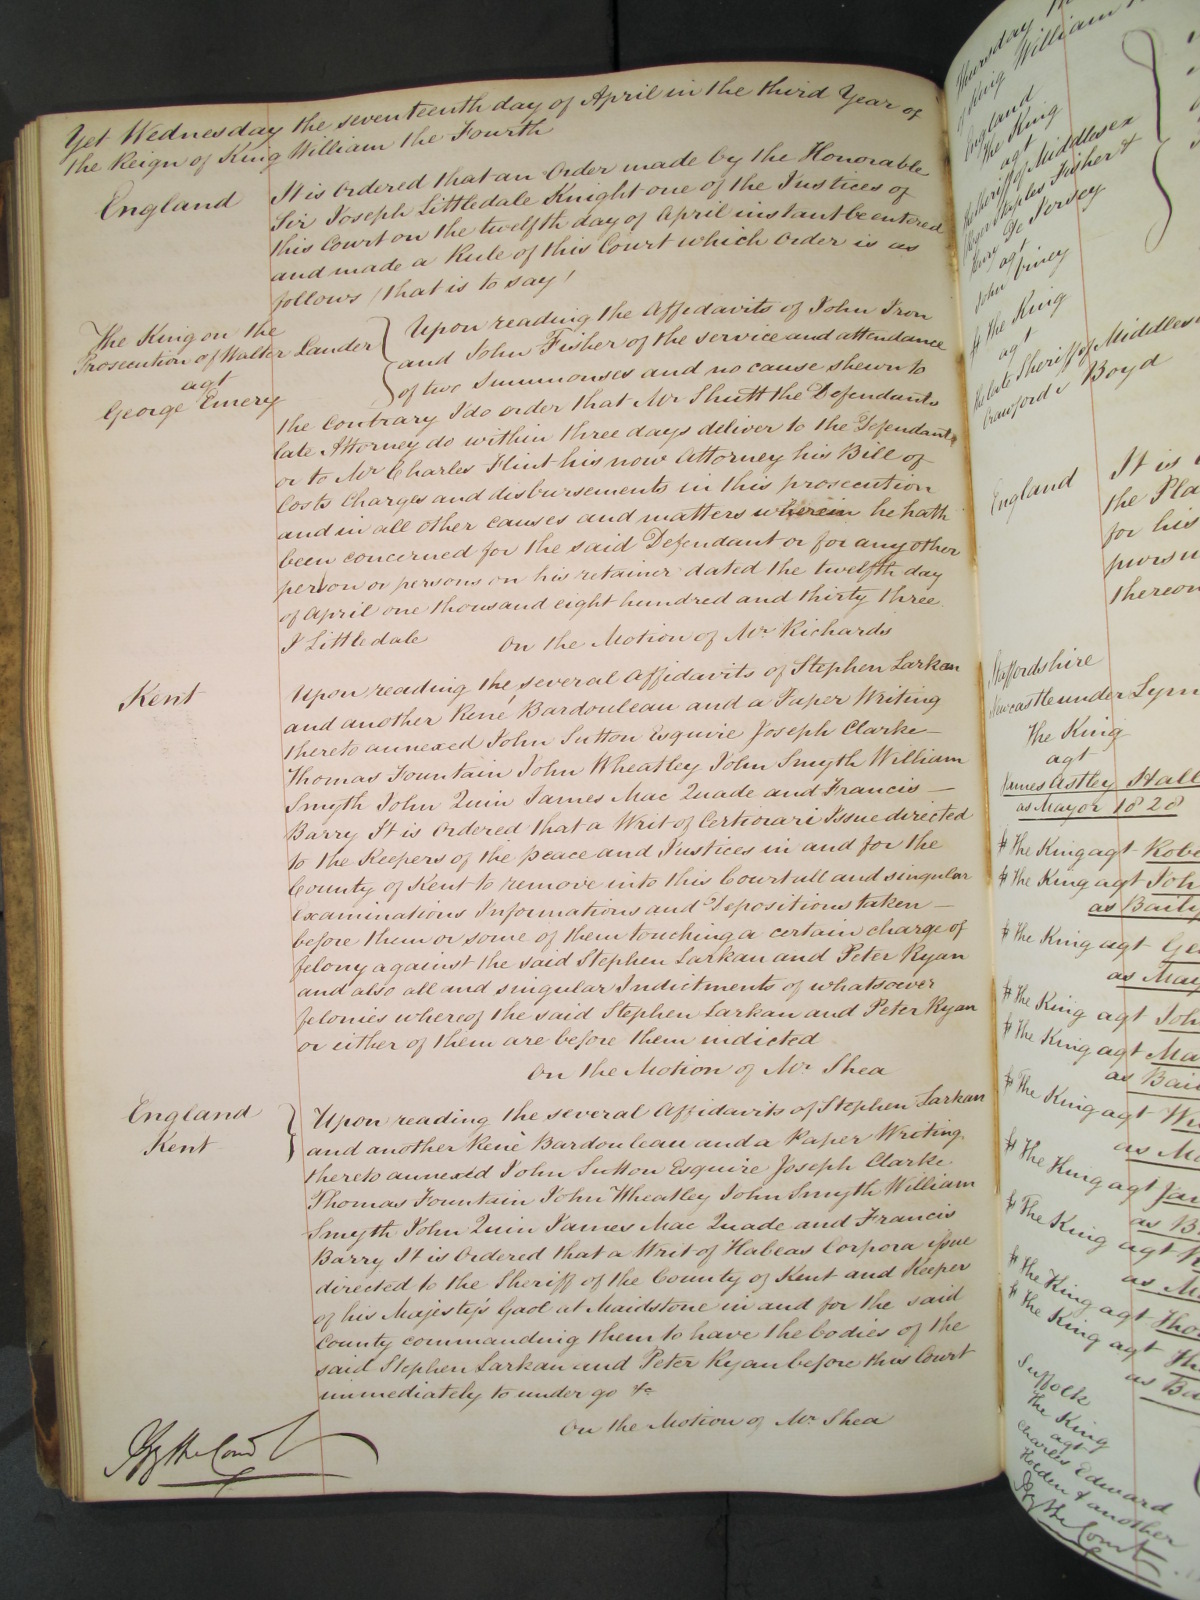 Yet Wednesday the seventeenth day of April in the third Year of
the Reign of King William the Fourth
England
It is ordered that an Order made by the Honorable
Sir Joseph Littledale Knight one of the Justices of
this Court on the twelfth day of April instant be entered
and made a Rule of this Court which Order is as
follows (that is to say)
The King on the
Prosecution of Walter Lander
agt
George Emery
Upon reading the Affidavits of John Iron
and John Fisher of the service and attendance
of two Summonses and no cause shewn to
the contrary I do order that Mr Shutt the Defendants
late Attorney do within three days deliver to the Defendant
or to Mr Charles Flint his now Attorney his Bill of
Costs Charges and disbursements in this prosecution
and in all other causes and matters wherein he hath
been concerned for the said Defendant or for any other
person or persons on his retainer dated the twelfth day
of April one thousand eight hundred and thirty three.
J Littledale On the Motion of Mr Richards
Kent
Upon reading the several Affidavits of Stephen Larkan
and another René Bardouleau and a Paper Writing
thereto annexed John Sutton Esquire Joseph Clarke
Thomas Fountain John Wheatley John Smyth William
Smyth John Quin James Mac Quade and Francis
Barry It is Ordered that a Writ of Certiorari Issue directed
to the Keepers of the peace and Justices in and for the
County of Kent to remove into this Court all and singular
Examinations Informations and Depositions taken
before them or some of them touching a certain charge of
felony against the said Stephen Larkan and Peter Ryan
and also all and singular Indictments of whatsoever
felonies whereof the said Stephen Larkan and Peter Ryan
or either of them are before them indicted
On the Motion of Mr Shea
England
Kent
Upon reading the several Affidavits of Stephen Larkan
and another Renè Bardouleau and a Paper Writing
thereto annexed John Sutton Esquire Joseph Clarke
Thomas Fountain John Wheatley John Smyth William
Smyth John Quin James Mac Quade and Francis
Barry It is Ordered that a Writ of Habeas Corpora issue
directed to the Sheriff of the County of Kent and Keeper
of his Majesty's Gaol at Maidstone in and for the said
County commanding them to have the bodies of the
said Stephen Larkan and Peter Ryan before this Court
immediately to under go &c
On the Motion of Mr Shea
By the Court
Thursday
of King William
England
The King
agt
the Sheriff of Middlesex
Staples Fisher &
De Jersey
agt
John
The King
agt
the late Sheriff of Middlesex
Crawford v Boyd
England
It is
the Pla
for his
pursu
thereon
Staffordshire
Newcastle under Lym
The King
agt
James Astley Hall
as Mayor 1828
The King agt Robe
The King agt Joh
as Baily
The King agt Ge
as May
The King agt Joh
The King agt Ma
as Bai
The King agt Wi
as Ma
The King agt Ja
as B
The King agt
as Ma
The King agt Tho
The King agt Th
as Ba
Suffolk
The King
agt
Charles Edward
Holden & another
By the Court